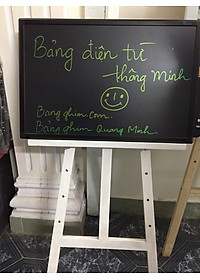 Bảng điện tử
thông minh
Bangghim.com.
Bảng ghim Quang Minh